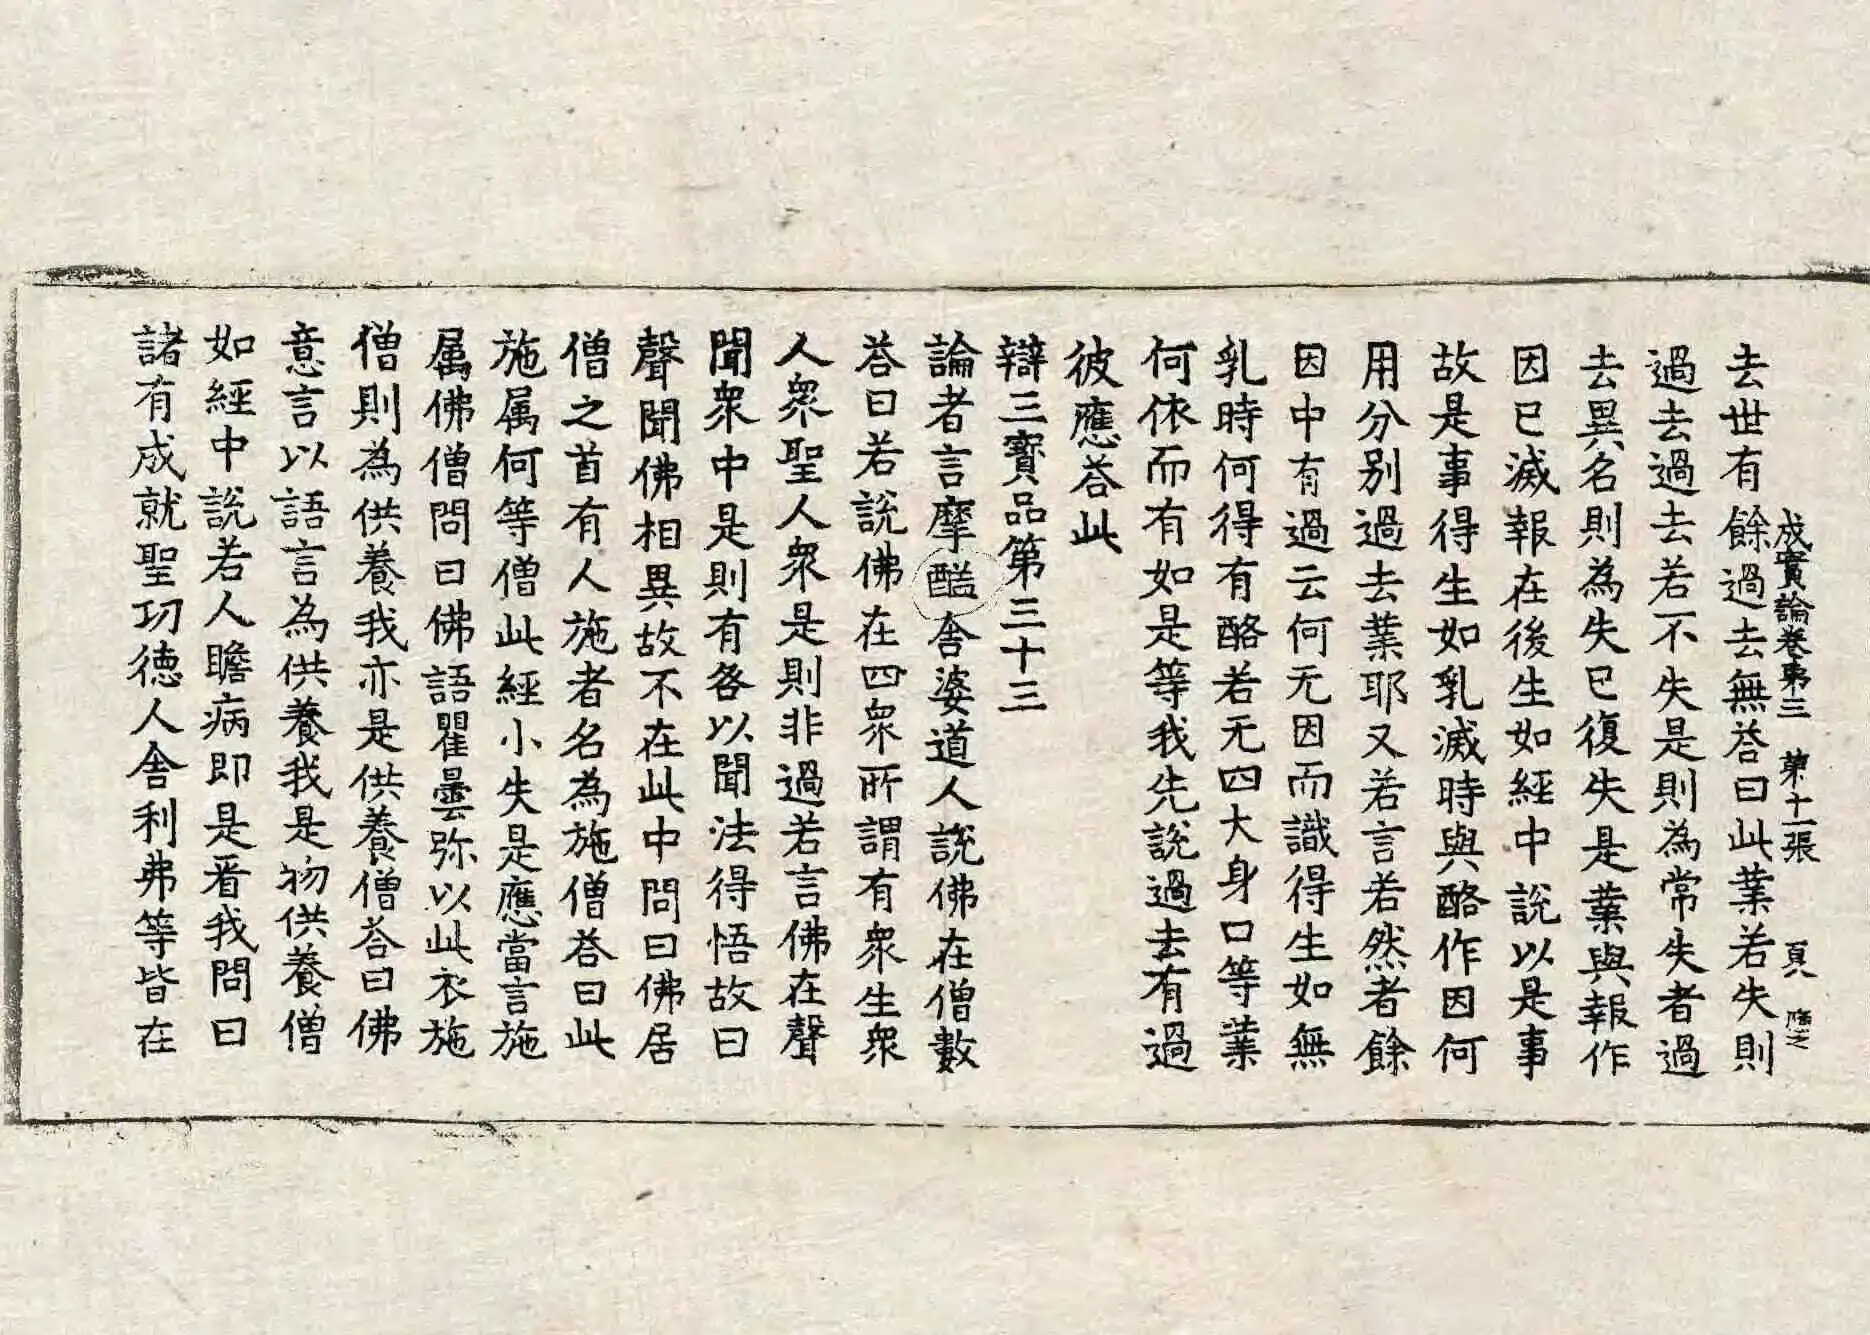 成實論卷苐三　苐十一張　頁
去世有餘過去無荅曰此業若失則
過去過去若不失是則為常失者過
去異名則為失已復失是業與報作
因已滅報在後生如經中說以是事
故是事得生如乳滅時與酪作因何
用分別過去業耶又若言若然者餘
因中有過云何无因而識得生如無
乳時何得有酪若无四大身口等業
何依而有如是等我先說過去有過
彼應荅此
辯三寶品第三十三
論者言摩醯舍婆道人說佛在僧數
荅曰若說佛在四衆所謂有衆生衆
人衆聖人衆是則非過若言佛在聲
聞衆中是則有咎以聞法得悟故曰
聲聞佛相異故不在此中問曰佛居
僧之首有人施者名為施僧荅曰此
施属何等僧此經小失是應當言施
属佛僧問曰佛語瞿曇弥以此衣施
僧則為供養我亦是供養僧荅曰佛
意言以語言為供養我是物供養僧
如經中說若人瞻病即是看我問曰
諸有成就聖功德人舍利弗等皆在